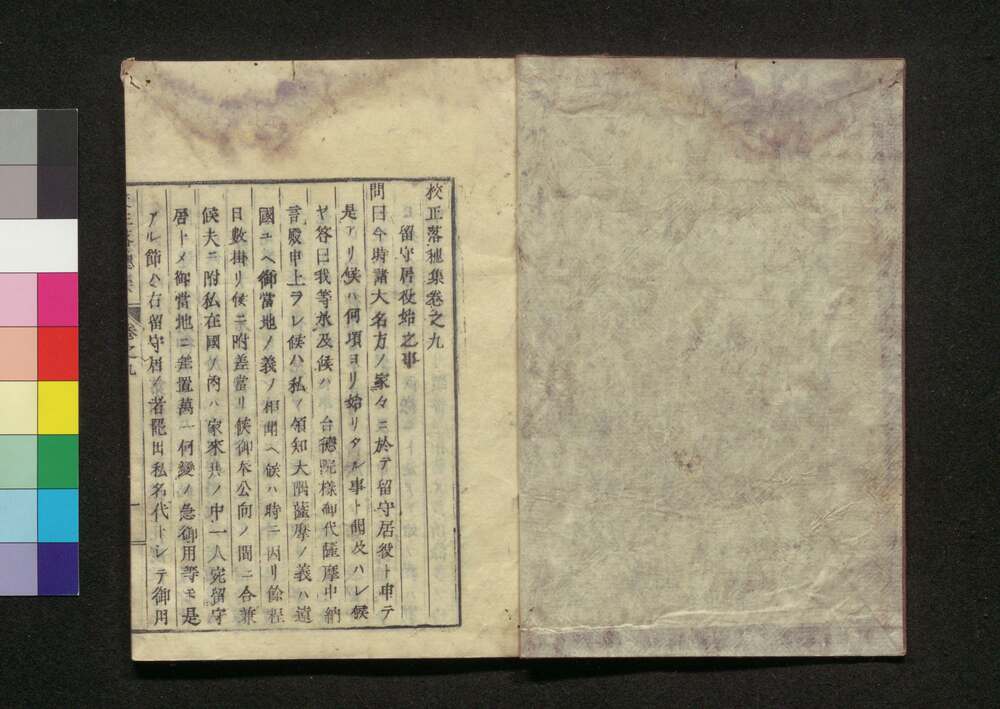 校正落穗集卷之九
留守居役始之事
問曰今時諸大名方ノ家々ニ於テ留守居役ト申テ
是アリ候ハ何頃ヨリ始リタル事ト聞及ハレ候
ヤ答曰我等承及候ハ台德院樣御代薩摩中納
言殿申上ラレ候ハ私ノ領知大隅薩摩ノ義ハ遠
國ユヘ御當地ノ義ノ相聞ヘ候ハ時ニ因リ餘程
日數掛リ候ニ附差當リ候御奉公向ノ間ニ合兼
候夫ニ附私在國ノ內ハ家來共ノ中一人宛留守
居トメ御當地ニ差置萬一何變ノ急御用等モ是
アル節ハ右留守居ノ者罷出私名代トシテ御用
卷之九